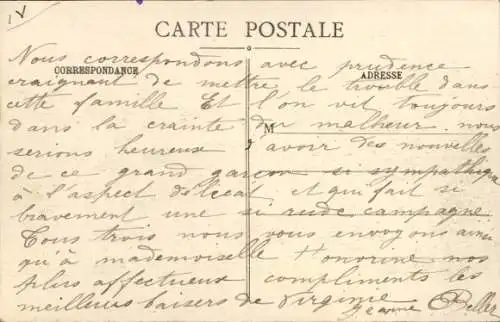 CARTE POSTALE
CORRESPONDANCE
ADRESSE
M
Nous correspondons avec prudence
craignant de mettre le trouble dans
cette famille Et l'on vit toujours
dans la crainte du malheur. nous
serions heureux d'avoir des nouvelles
de ce grand garçon si sympathique
à l'aspect délicat et qui fait si
bravement une si rude campagne
Tous trois nous vous envoyons ainsi
qu'à mademoiselle Honorine nos
plus affectueux compliments les
meilleurs baisers de Virginie
Jeanne